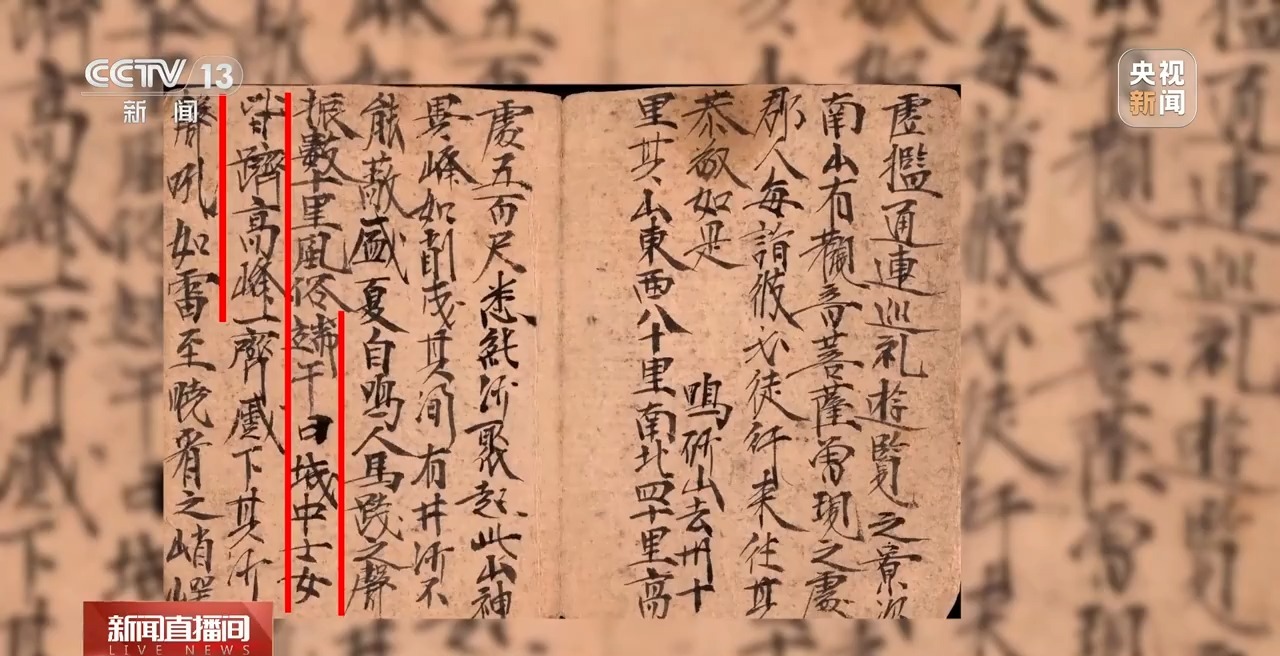 CCTV 13
新闻
央视
新闻
虚檻通連巡礼遊覽之景次
南山有觀音菩薩曾現之處
郡人每詣彼必徒行来往其
恭敬如是　鳴沙山去州十
里其山東西八十里南北四十里高
處五百尺悉純沙聚起此山神
異峰如削成其間有井沙不
能蔽盛夏自鳴人馬踐之聲
振數十里風俗端午日城中士女
皆躋高峰一齊蹙下其沙
聲吼如雷至曉看之峭崿
新闻直播间
LIVE NEWS